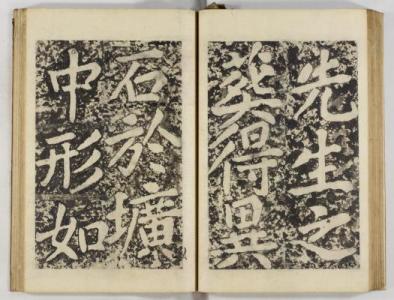 先生之
葬得異
石於壙
中形如